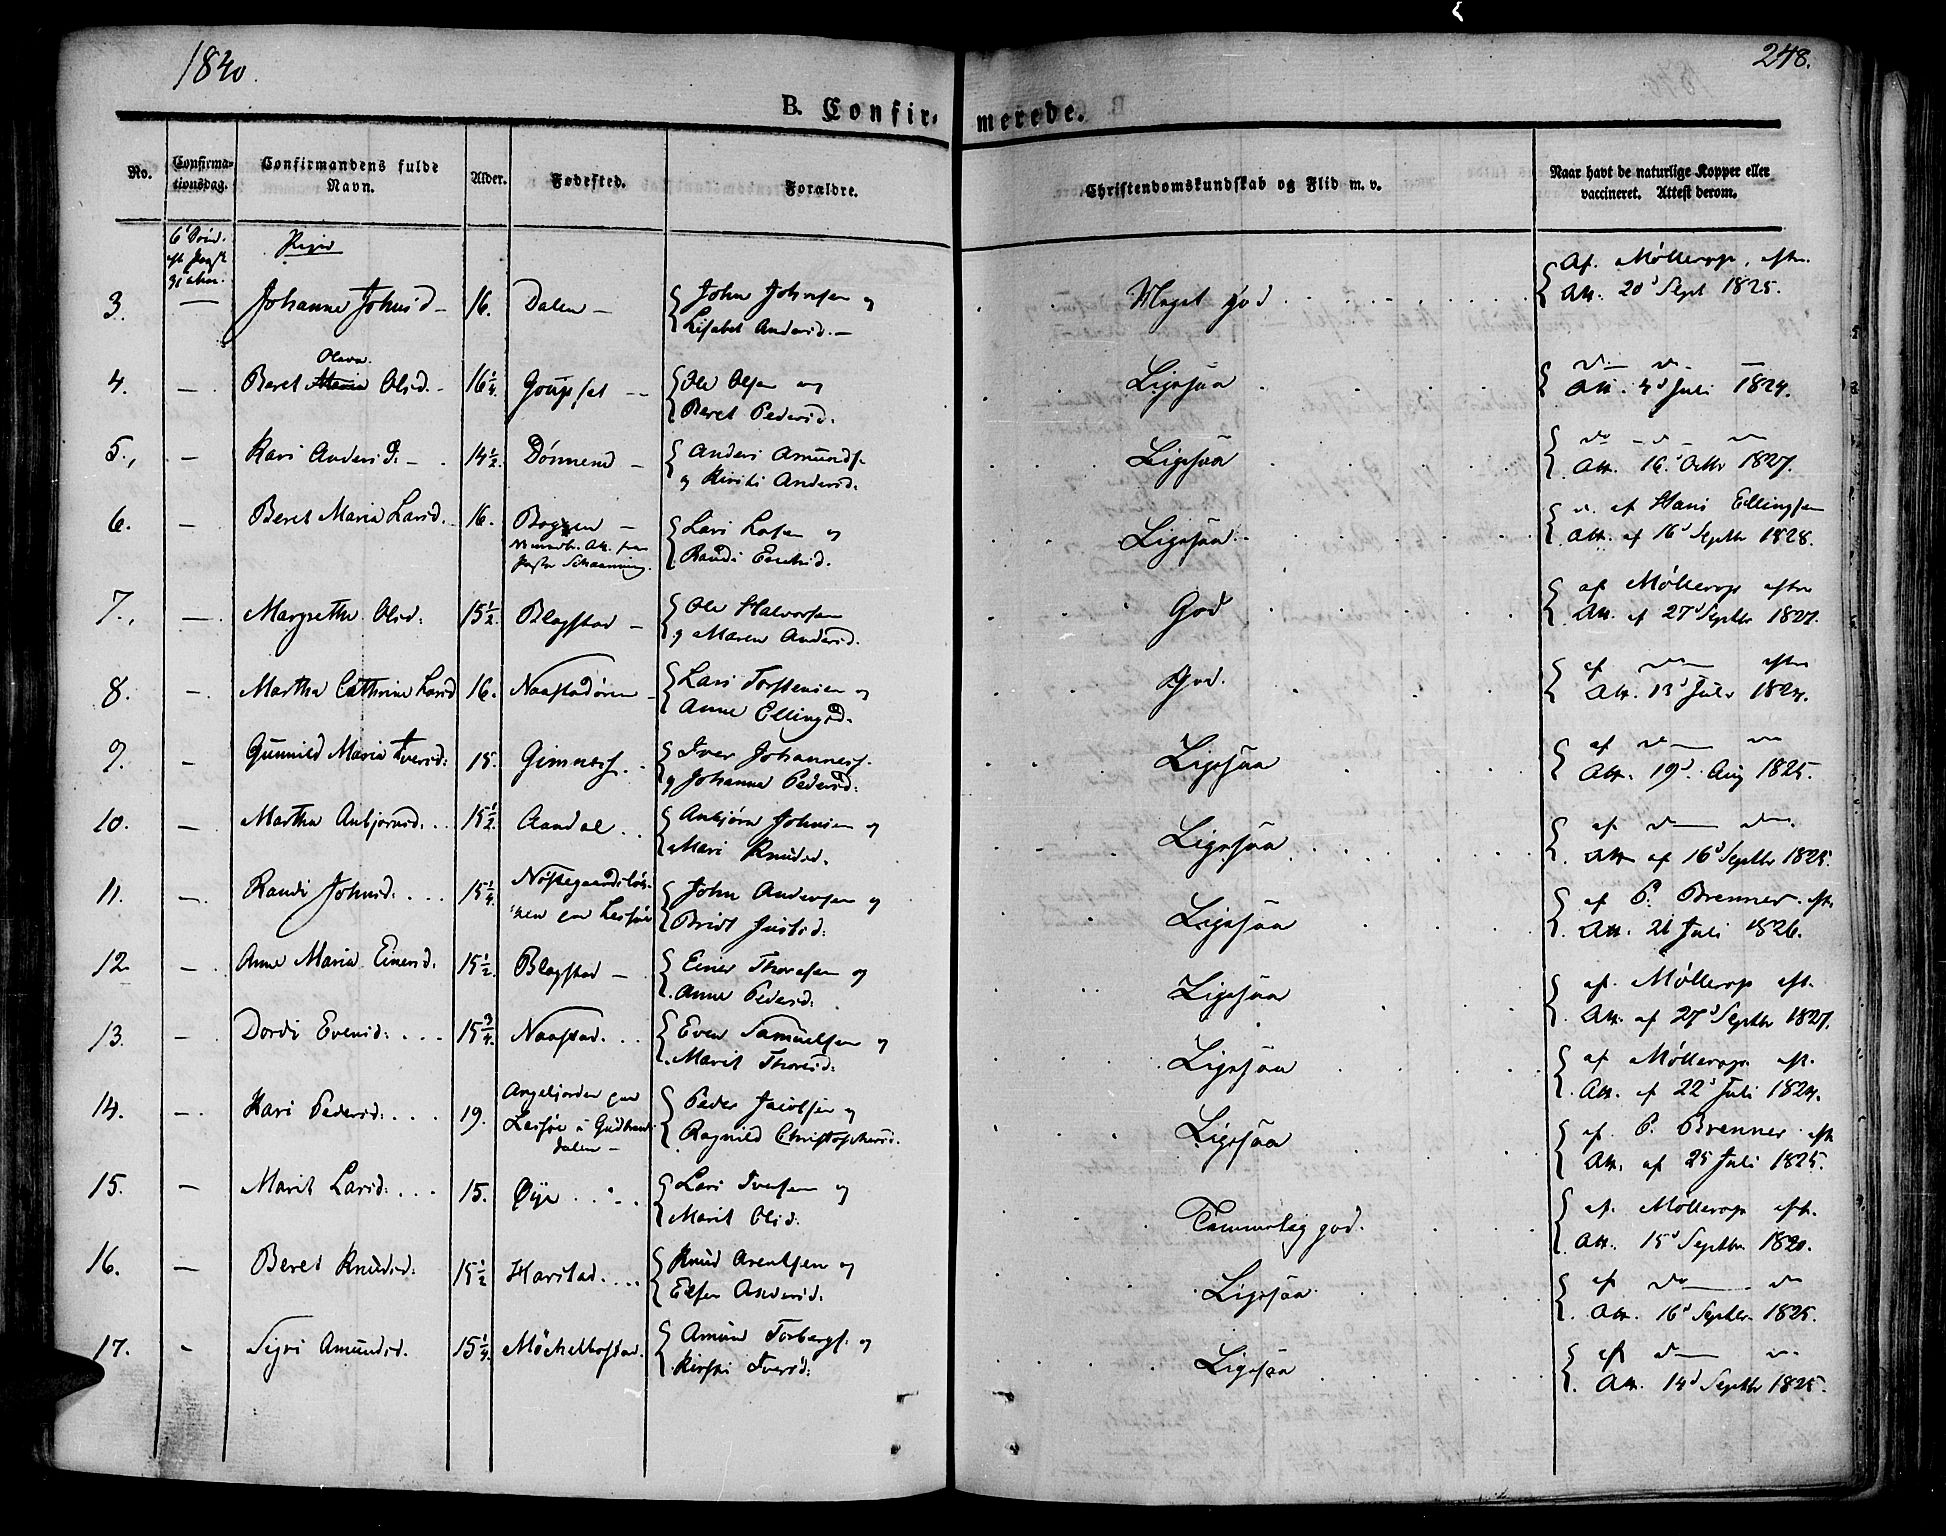 1840.
248.
B. Confir-
merede.
No.
Confirma-
tionsdag.
Confirmandens fulde
Navn.
Alder.
Fødested.
Forældre.
Christendomskundskab og Flid m. v.
Naar havt de naturlige Kopper eller
vaccineret. Attest derom.
Piger
3. — Johanne Johnsd. — 16. Dalen —
John Johnsen og
Lisabet Andersd. —
Meget god
Af Møllerop, eftr.
Att. 20d Sept 1825.
Olava.
4. — Beret Maria Olsd. — 16 1/4.
Ole Olsen og
Beret Pedersd.
Ligesaa
Att. 4d Juli 1824.
5., — Kari Andersd: — 14 1/2. Dønnem —
Anders Amunds.
og Kirsti Andersd.
Ligesaa
do — do —
Att. 16d Octbr 1827.
6. — Beret Maria Larsd. 16. Boggen —
Lars Larsen og
Randi
Ligesaa
af Hans Ellingsen
Att. af 16d Septbr 1828.
7., — Margrethe Olsd: 15 1/2. Blagstad —
Ole Halvorsen
og Maren Andersd.
God
af Møllerop eftr
Att. af 27d Septbr 1827.
8. — Martha Cathrine Larsd 16. Naastadøren —
Lars Torstensen og
Anne Ellingsd.
God.
af do eftr
Att. 13d Juli 1824.
9. — Gunnild Maria Iversd: 15. Gimnes.
Iver Johanness.
og Johanna Pedersd:
Ligesaa
af do — do
Att. 19d. Aug 1825.
10. — Martha Anbjørnsd: 15 1/2. Aandal
Anbjørn Johnsen og
Mari Knudsd.
Ligesaa
af do — do
Att af 16d Septbr 1825.
11. — Randi Johnsd: 15 1/4.
John Andersen og
Bridt
Ligesaa
af P. Brenner eftr
Att. 21 Juli 1826.
12. — Anne Maria Einersd: 15 1/2. Blagstad —
Einer Thoresen og
Anne Pedersd:
Ligesaa
af Møllerop eft.
Att. af 27d Septbr 1827.
13. — Dordi Evensd: 15 3/4. Naastad.
Even Samuelsen og
Marit Thoresd:
Ligesaa
af Møllerop eft.
Att. af 22d Juli 1824.
14. — Kari Pedersd: 19.
Lessøe i Gudbrands
dalen —
Peder Jacobsen og
Ragnild Christophersd.
Ligesaa
af P. Brenner eft
Att. af 25 Juli 1825.
15. — Marit Larsd: 15. Øye
Lars Iversen og
Marit Olsd:
Temmelig god.
af Møllerop eft.
Att. 15d Septbr. 1820.
16. — Beret Knudsd: 15 1/2 Harstad.
Knud Arentsen og
Elsen Andersd:
Ligesaa
af do — do
Att. 16d Septbr. 1825.
17. — Sigri Amundsd. 15 1/4. Møchelbostad.
Amund Torbergs. og
Kirsti Iversd:
Ligesaa
af do — do
Att. 14d Septbr 1825.